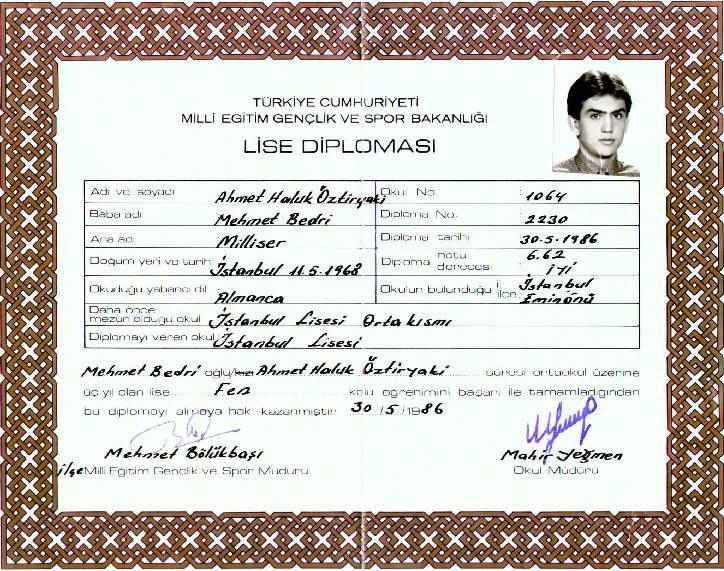 TÜRKİYE CUMHURİYETİ
MİLLİ EĞİTİM GENÇLİK VE SPOR BAKANLIĞI
LİSE DİPLOMASI
Adı ve soyadı Ahmet Haluk Öztiryaki Okul No. : 1064
Baba adı Mehmet Bedri Diploma No. : 2230
Ana adı Milliser Diploma tarihi : 30-5-1986
Doğum yeri ve tarihi İstanbul 11.5-1968 Diploma notu derecesi : 6.62 İYİ
Okuduğu yabancı dil Almanca Okulun bulunduğu il ilçe İstanbul Eminönü
Daha önce mezun olduğu okul İstanbul Lisesi Orta kısmı
Diplomayı veren okul İstanbul Lisesi
Mehmet Bedri oğlu/kızı Ahmet Haluk Öztiryaki süresi ortaokul üzerine
üç yıl olan lise Fen kolu öğrenimini başarı ile tamamladığından
bu diplomayı almaya hak kazanmıştır. 30/5/1986
Mehmet Bölükbaşı Mahir Yeğmen
İlçe Milli Eğitim Gençlik ve Spor Müdürü Okul Müdürü